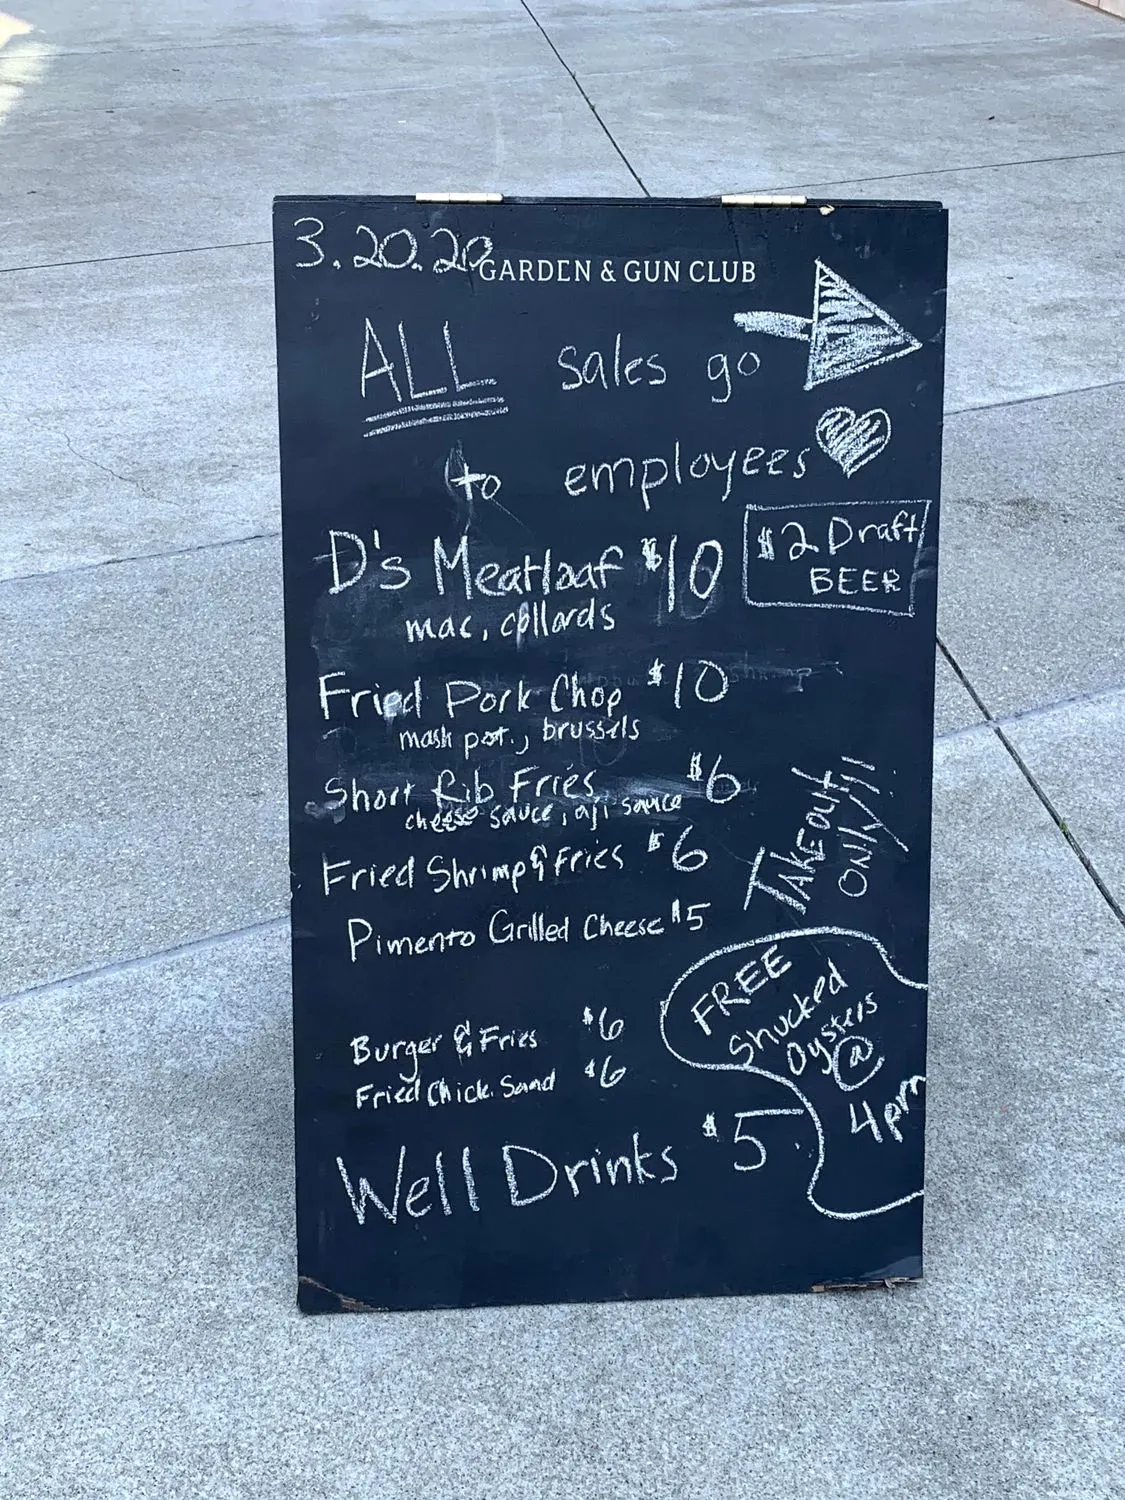 3.20.20
GARDEN & GUN CLUB
ALL sales go
to employees
$2 Draft
BEER
D's Meatloaf $10
mac, collards
Fried Pork Chop $10
mash pot., brussels
Short Rib Fries $6
cheese sauce, aji sauce
Fried Shrimp & Fries $6
Pimento Grilled Cheese $5
TAKEOUT
ONLY!!
FREE
Shucked
Oysters
@
4pm
Burger & Fries $6
Fried Chick. Sand $6
Well Drinks $5